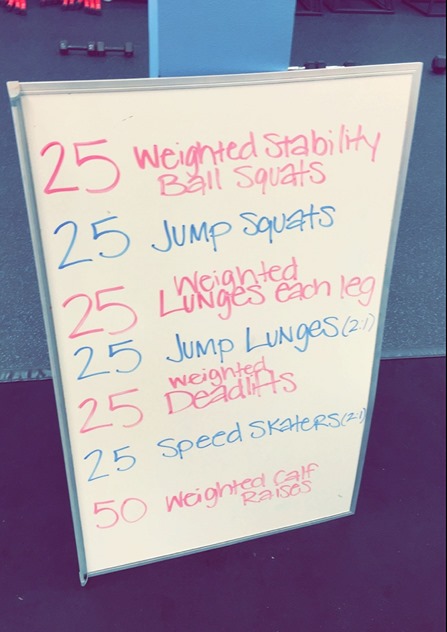 25 Weighted Stability
Ball Squats
25 Jump Squats
25 Weighted
Lunges each leg
25 Jump Lunges (2:1)
25 weighted
Deadlifts
25 Speed Skaters (2:1)
50 Weighted Calf
Raises